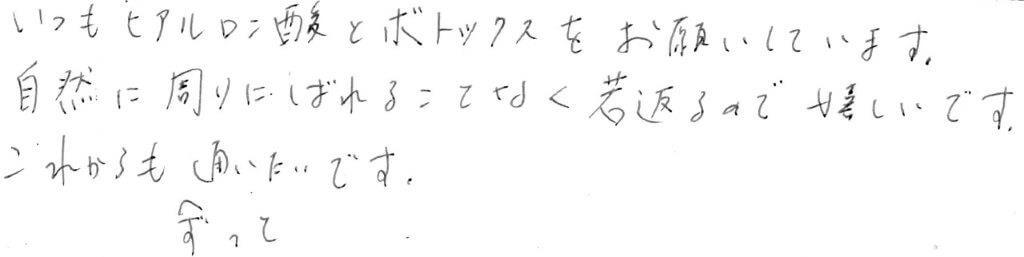 いつもヒアルロン酸とボトックスをお願いしています。
自然に周りにばれることなく若返るので嬉しいです。
これからも通いたいです。
ずっと